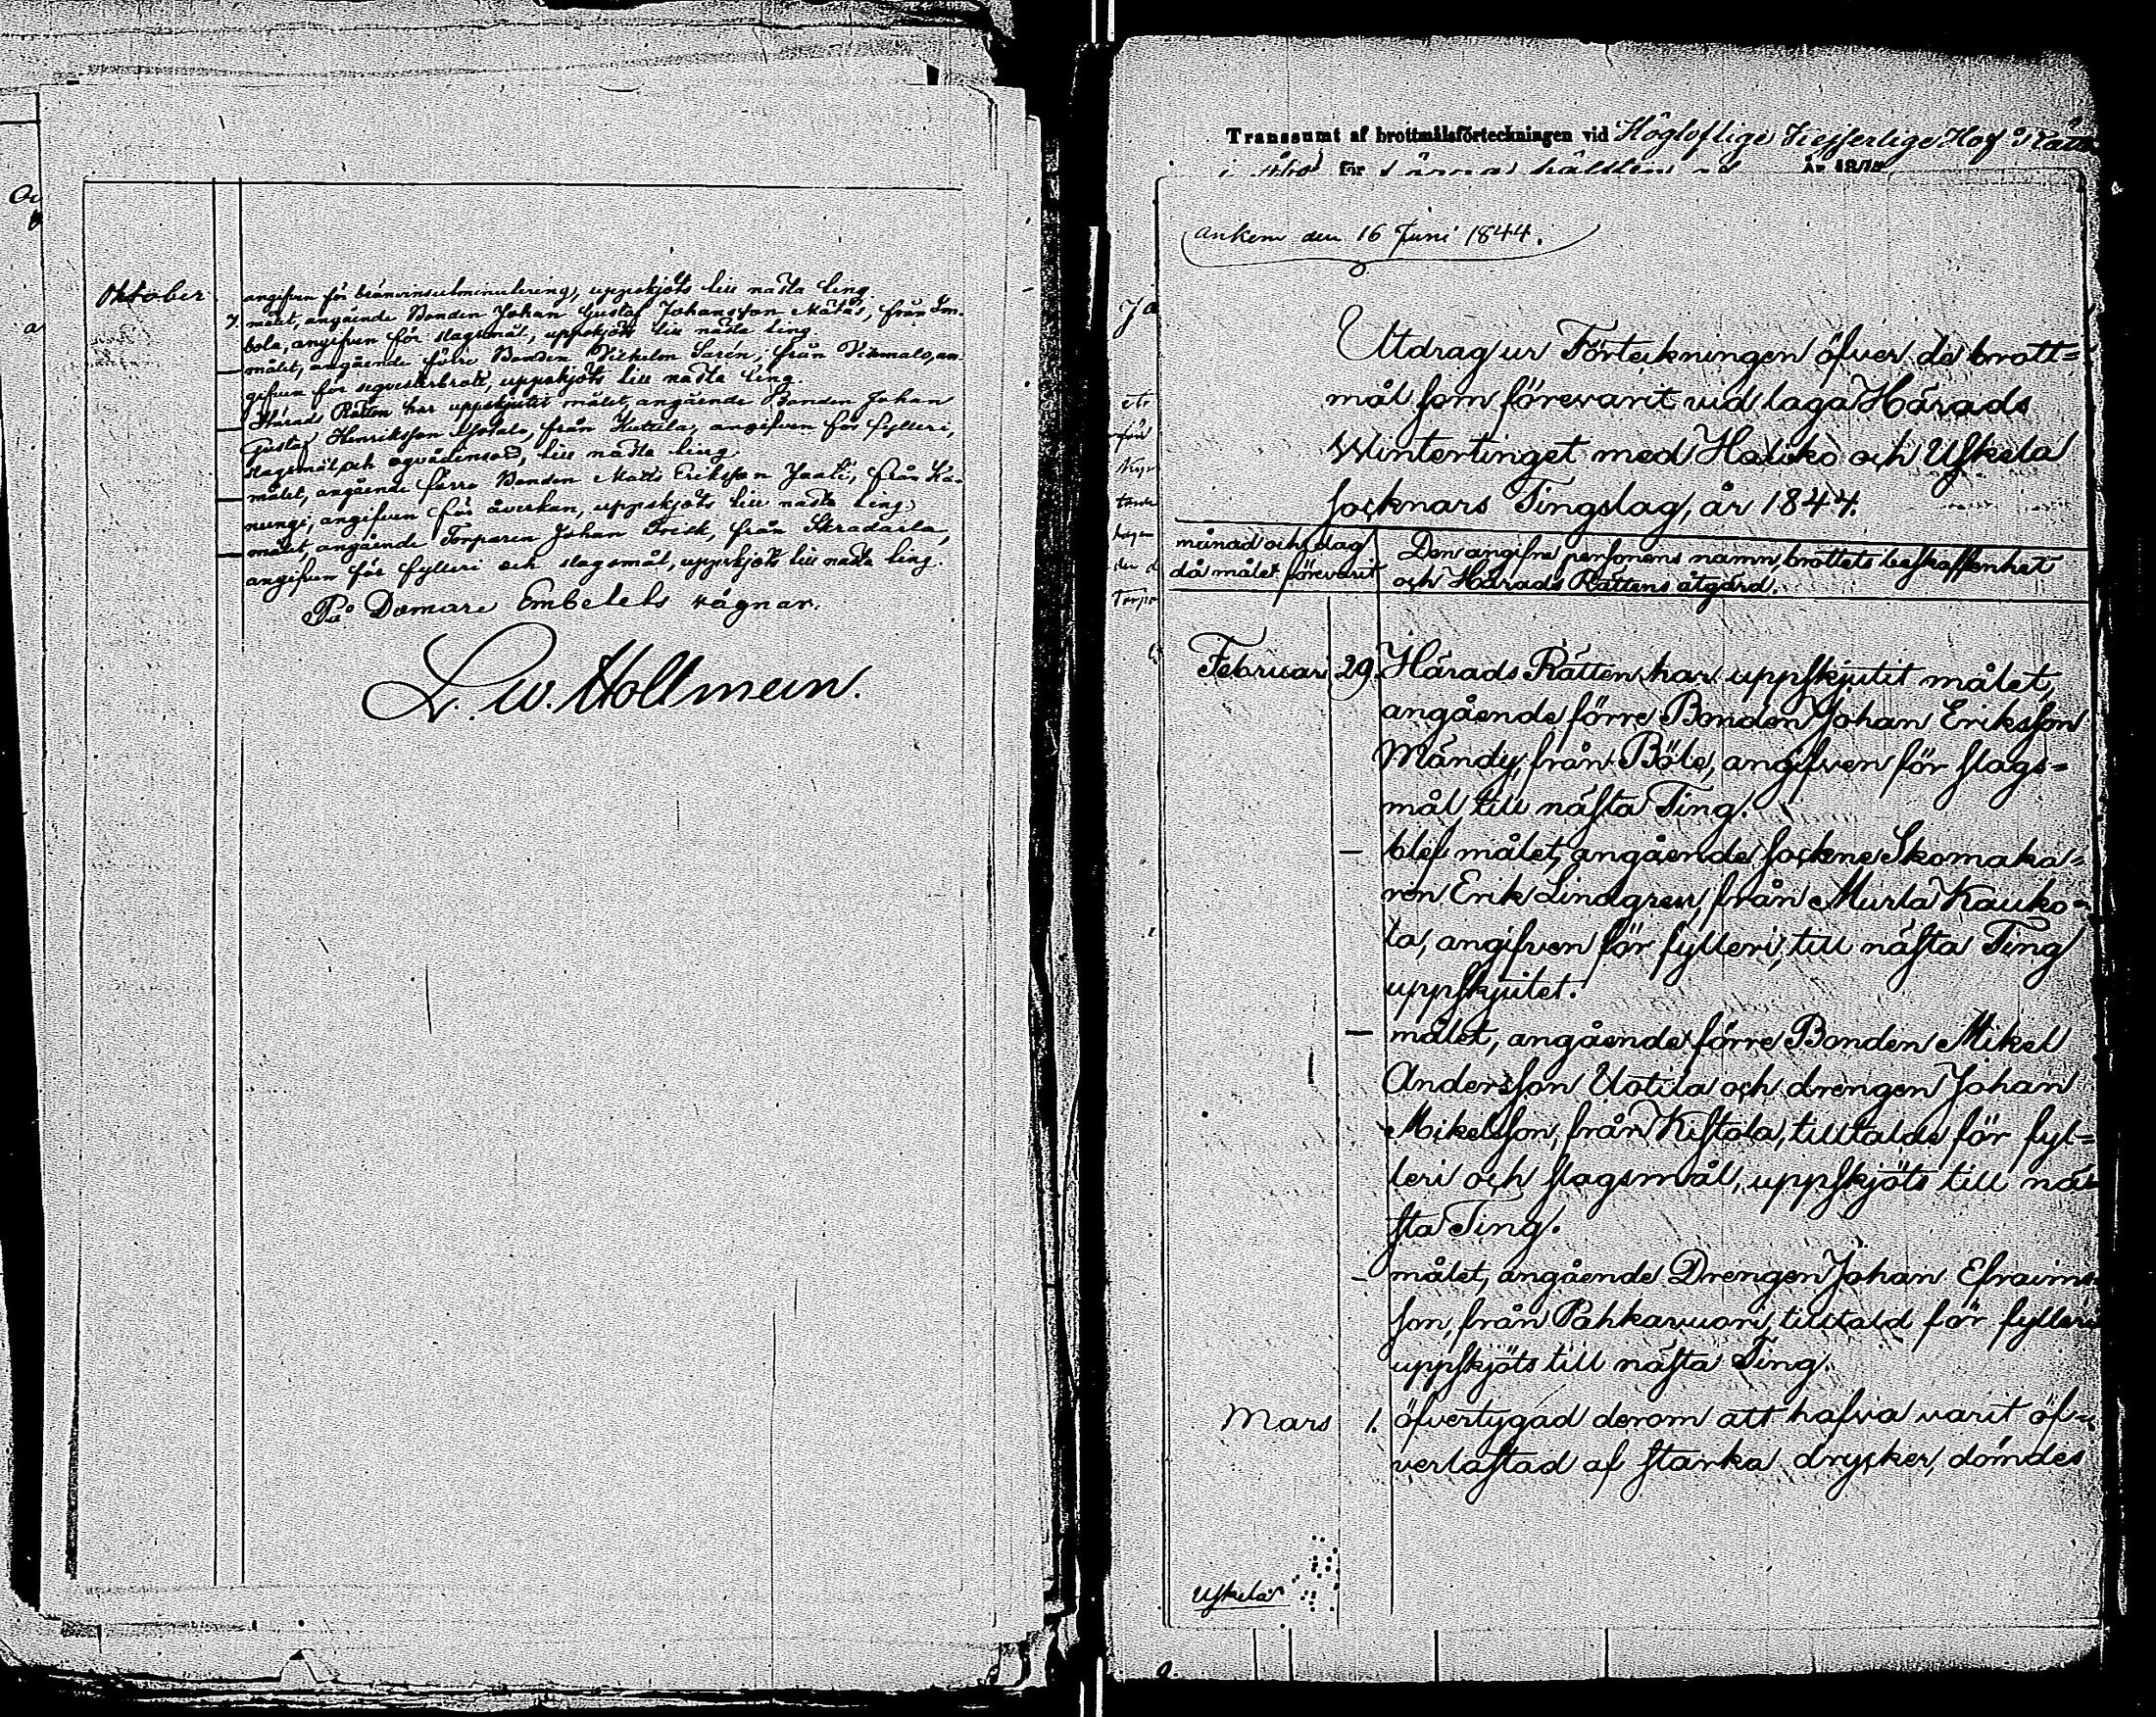 Oktober
angifven för bränvinsutminutering, uppskjöts till nästa ting.
7. målet, angående Bonden Johan Gustaf Johansson Mätäs, från Im-
bola, angifven för slagsmål, uppskjöts till nästa ting.
— målet, angående förre Bonden Vilhelm Sarén, från Viksmalo, an-
gifven för sqvesterbrott, uppskjöts till nästa ting.
— Härads Rätten har uppskjutit målet, angående Bonden Johan
Gustaf Henriksson från Kuttila, angifven för fylleri,
slagsmål och oqvädinsord, till nästa ting.
— målet, angående förre Bonden Matts Eriksson Jaati, från Ka-
nungi, angifven för åverkan, uppskjöts till nästa ting.
— målet, angående Torparen Johan Frisk, från
angifven för fylleri och slagsmål, uppskjöts till nästa ting.
På Domare Embetets vägnar.
L. W. Hollmén.
Transsumt af brottmålsförteckningen vid Högloflige Kejserlige Hof Rätten
i Åbo för
ankom den 16 Juni 1844.
Utdrag ur Förteckningen öfver de brott=
mål som förevarit vid laga Härads
Wintertinget med Haliko och Uskela
socknars Tingslag, år 1844.
månad och dag
då målet förevarit
Den angifne personens namn, brottets beskaffenhet
och Härads Rättens åtgärd.
Februari 29. Härads Rätten har uppskjutit målet,
angående förre Bonden Johan Eriksson
Mändy, från Böle, angifven för slags=
mål, till nästa Ting.
— blef målet, angående sockne Skomaka=
ren Erik Lindgren, från Murla Kauko=
la, angifven för fylleri, till nästa Ting
uppskjutet.
— målet, angående förre Bonden Mikel
Andersson Uotila och drengen Johan
Mikelsson, från Kistola, tilltalde för fyl=
leri och slagsmål, uppskjöts till nä=
sta Ting.
— målet, angående Drengen Johan Efraims=
son, från Pahkavuori, tilltald för fylleri
uppskjöts till nästa Ting.
Mars 1. öfvertygad derom att hafva varit öf=
verlastad af starka drycker, dömdes
Uskela